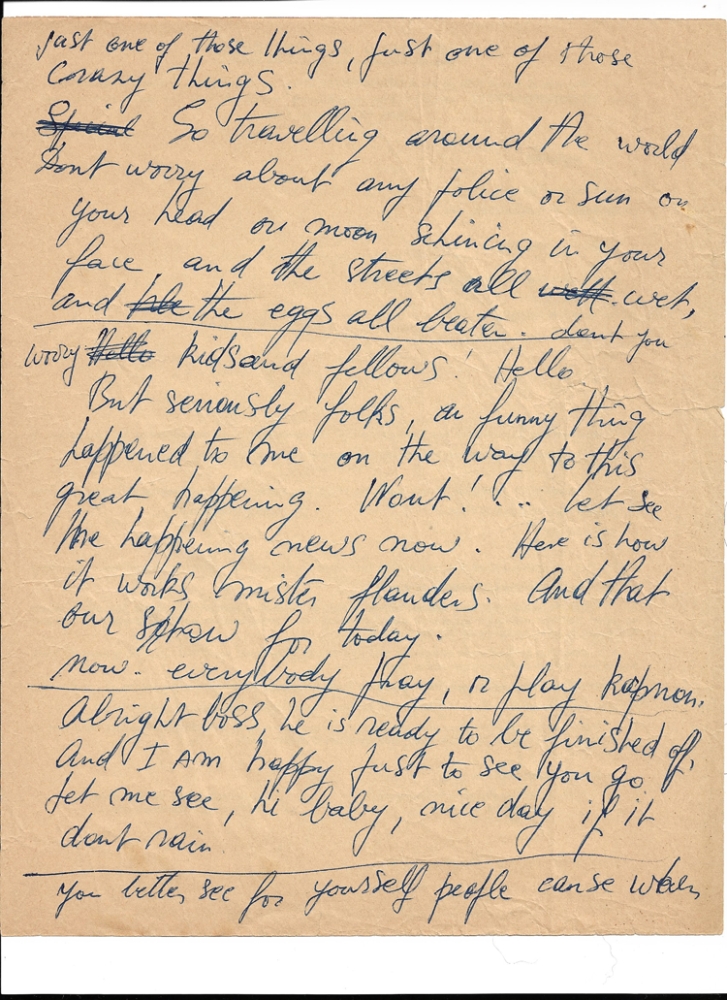 just one of those things, just one of those
Crazy things.
So travelling around the world
Dont worry about any police or sun on
your head or moon schining in your
face, and the streets all wet,
and the eggs all beaten. dont you
worry kids and fellows! Hello
But seriously folks, a funny thing
happened to me on the way to this
great happening. Wont!... let see
the happening news now. Here is how
it works mister flanders. And that
our show for today.
now. everybody pray, or play
Alright boss, he is ready to be finished of,
And I Am happy just to see you go
let me see, hi baby, nice day if it
dont rain
you better see for yourself people cause when